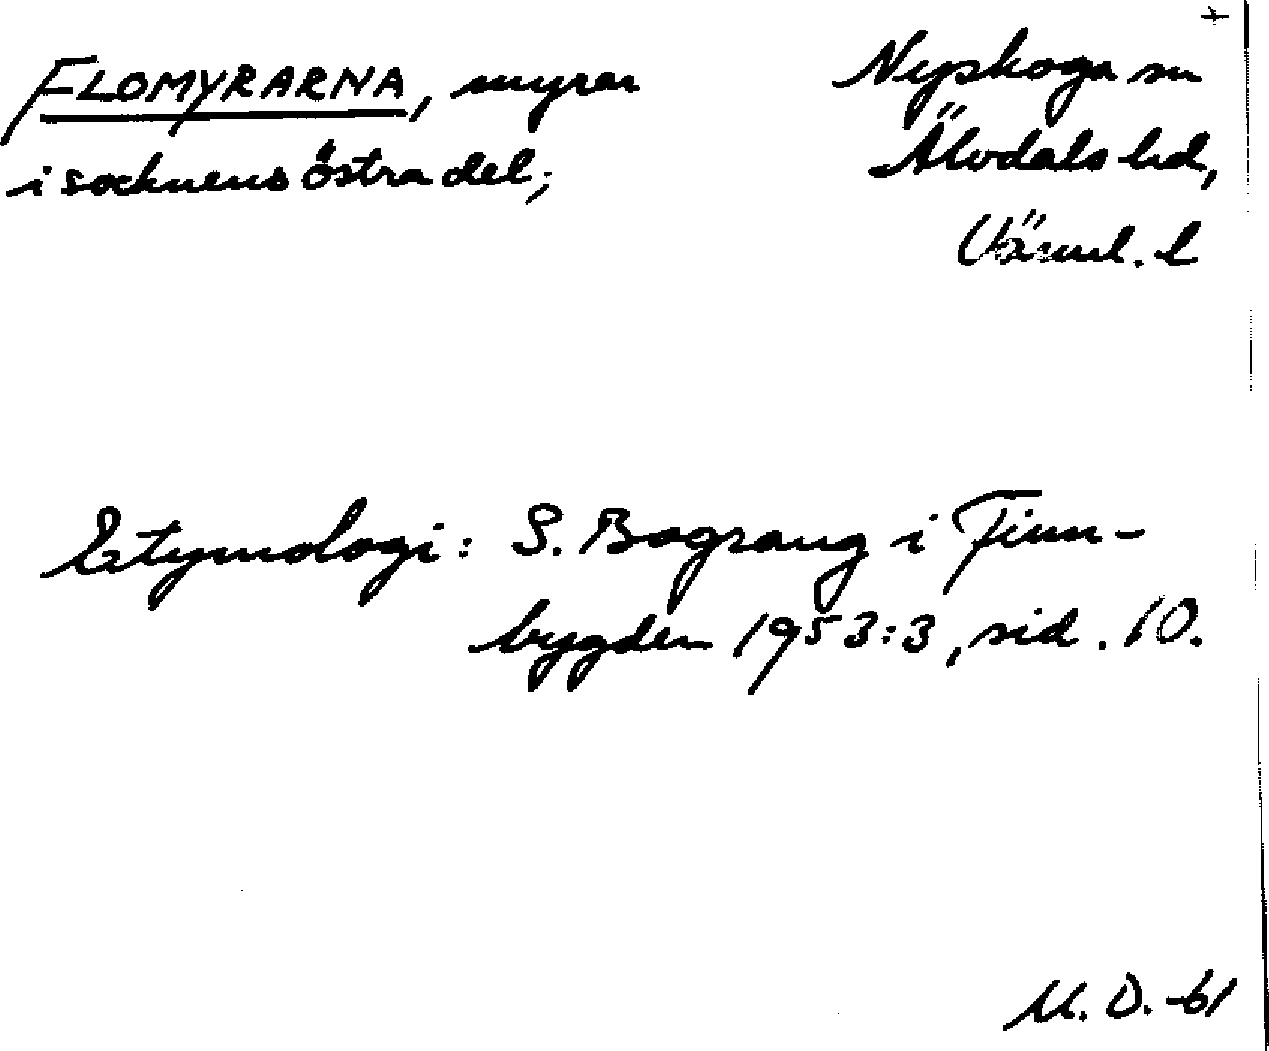 FLOMYRARNA, myrar
i socknens östra del;
Nyskoga sn
Älvdals hd,
Värml. l
Etymologi: S. Bograng i Finn-
bygden 1953:3, sid. 10.
M. D. -61